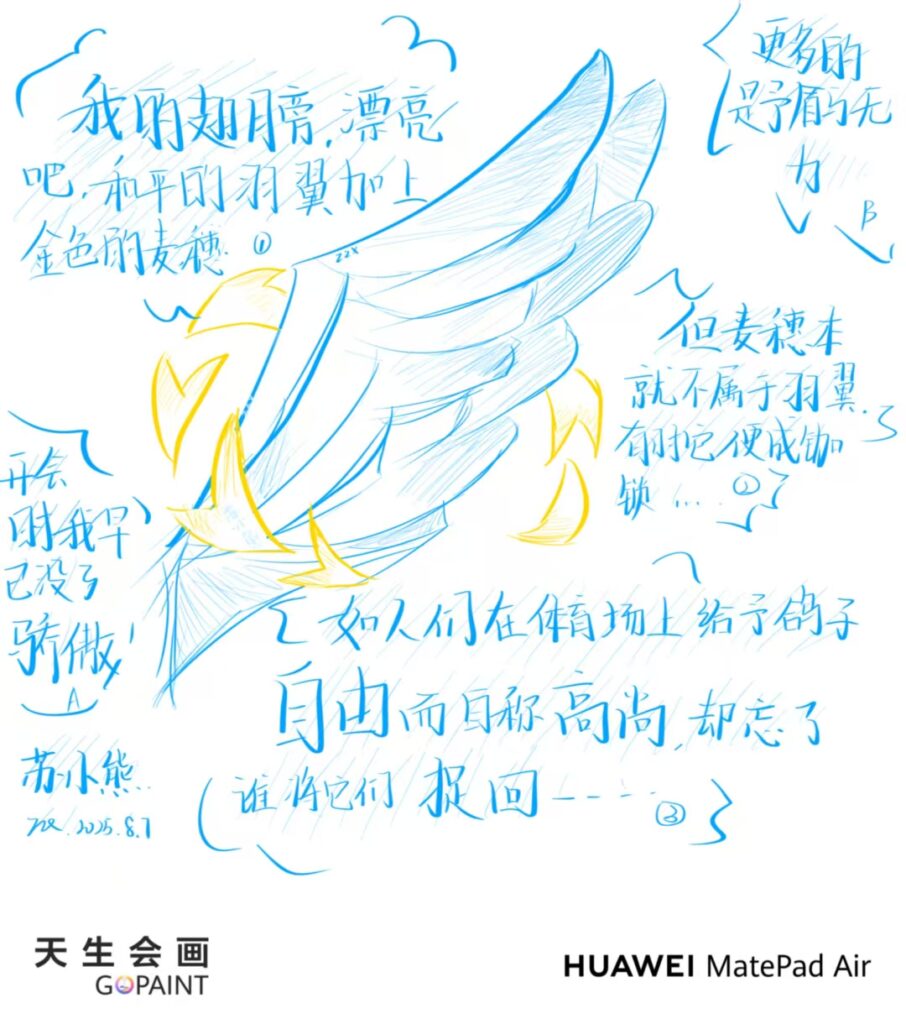 我的翅膀,漂亮
吧,和平的羽翼加上
金色的麦穗 ①
zzx
更多的
是矛盾与无
力
B
但麦穗本
就不属于羽翼,
有时它便成伽
锁…… ②
开会
时我早
已没了
骄傲!
A
如人们在体育场上给予鸽子
自由而自称高尚,却忘了
谁将它们捉回---- ③
苏小熊
zzx.2025.8.7
天生会画
GOPAINT
HUAWEI MatePad Air